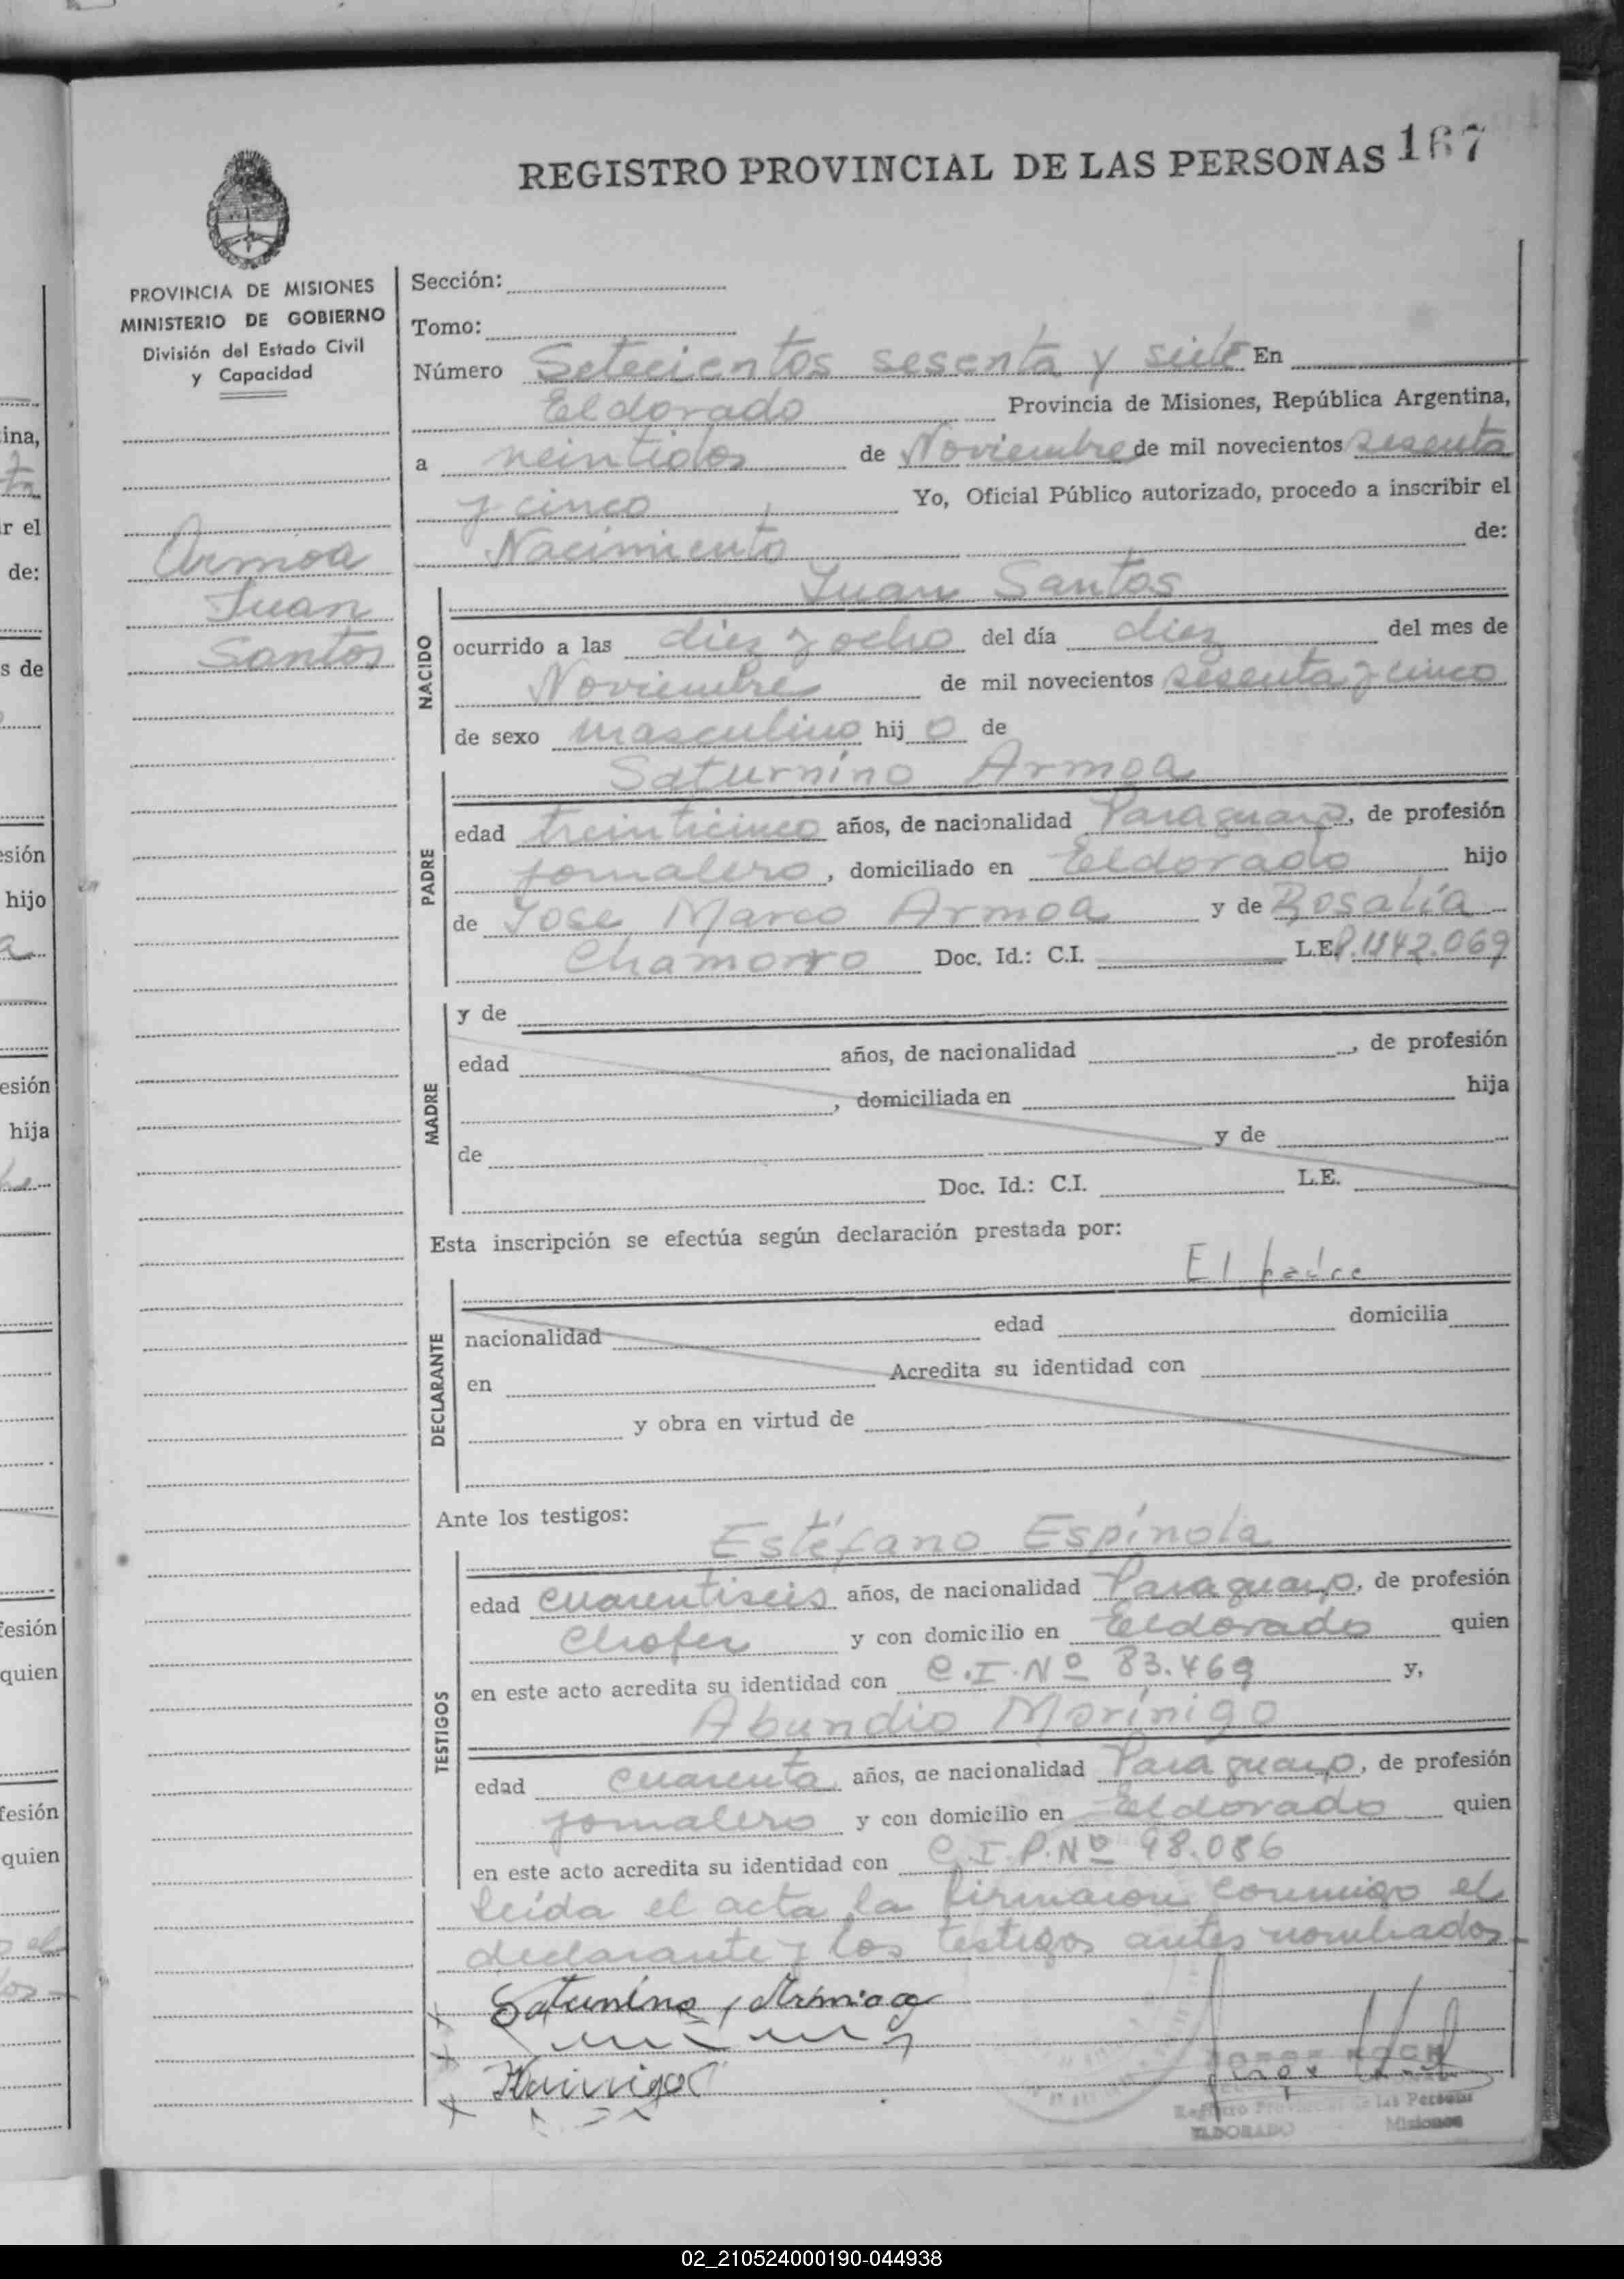 REGISTRO PROVINCIAL DE LAS PERSONAS 167
PROVINCIA DE MISIONES
MINISTERIO DE GOBIERNO
División del Estado Civil
y Capacidad
Armoa
Juan
Santos
Sección:
Tomo:
Número Setecientos sesenta y siete En
Eldorado Provincia de Misiones, República Argentina,
a veintidos de Noviembre de mil novecientos sesenta
y cinco Yo, Oficial Público autorizado, procedo a inscribir el
Nacimiento de:
Juan Santos
NACIDO
ocurrido a las diez y ocho del día diez del mes de
Noviembre de mil novecientos sesenta y cinco
de sexo masculino hij o de
Saturnino Armoa
PADRE
edad treinticinco años, de nacionalidad Paraguayo, de profesión
jornalero, domiciliado en Eldorado hijo
de Jose Marco Armoa y de Rosalía
Chamorro Doc. Id.: C.I. L.E.
MADRE
y de
edad años, de nacionalidad , de profesión
, domiciliada en hija
de y de
Doc. Id.: C.I. L.E.
Esta inscripción se efectúa según declaración prestada por:
El padre
DECLARANTE
nacionalidad edad domicilia
en Acredita su identidad con
y obra en virtud de
Ante los testigos:
Estéfano Espínola
TESTIGOS
edad cuarentiseis años, de nacionalidad Paraguayo, de profesión
Chofer y con domicilio en Eldorado quien
en este acto acredita su identidad con C.I. Nº 83.469 y,
Abundio Morínigo
edad cuarenta años, de nacionalidad Paraguayo, de profesión
jornalero y con domicilio en Eldorado quien
en este acto acredita su identidad con C.I.P. Nº 48.086
leída el acta la firmaron conmigo el
declarante y los testigos antes nombrados
Saturnino Armoa
KOCH
Registro Provincial de las Personas
ELDORADO Misiones
ina,
r el
de:
s de
esión
hijo
esión
hija
fesión
quien
fesión
quien
02_210524000190-044938